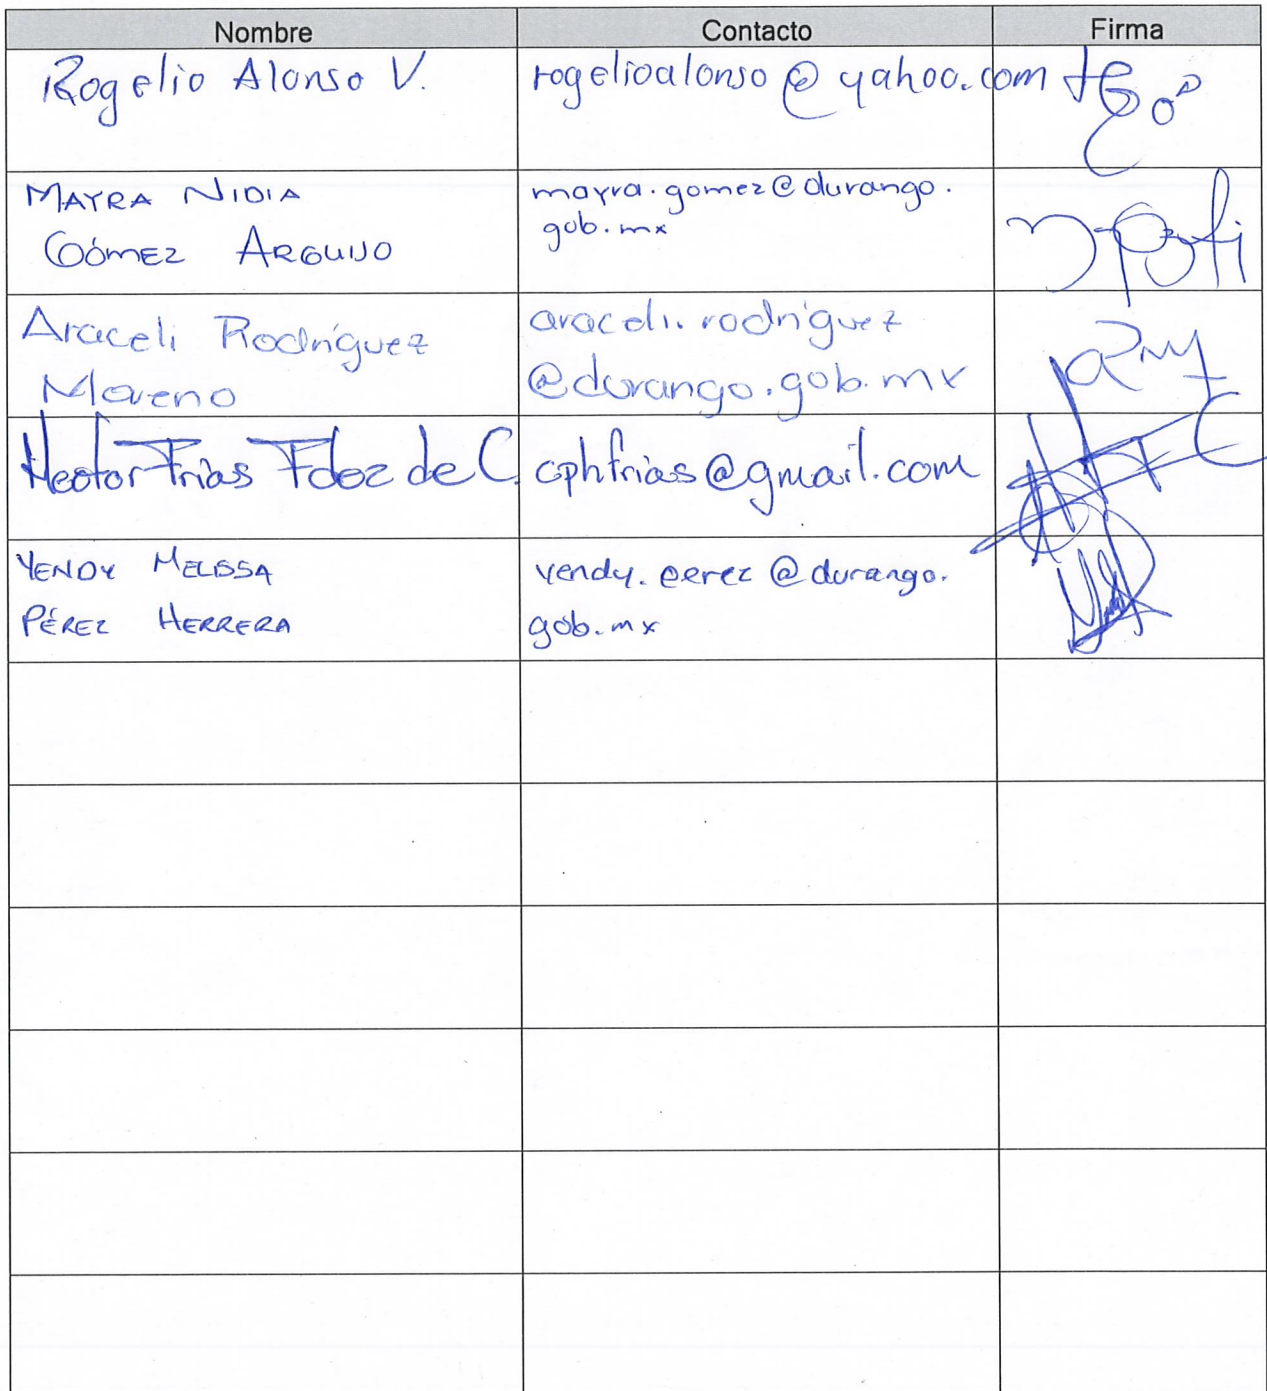 Nombre Contacto Firma
Rogelio Alonso V. rogelioalonso@yahoo.com
MAYRA NIDIA
GÓMEZ ARGUIJO
mayra.gomez@durango.
gob.mx
Araceli Rodríguez
Moreno
araceli.rodriguez
@durango.gob.mx
Hector Frias Fdez de C. cphfrias@gmail.com
YENDY MELISSA
PÉREZ HERRERA
yendy.perez@durango.
gob.mx